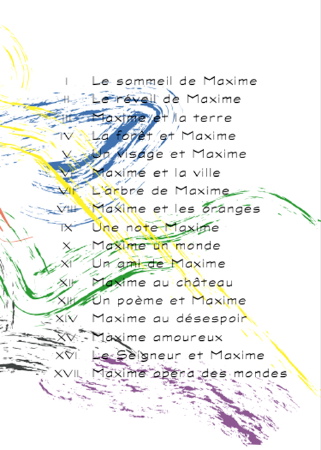 I Le sommeil de Maxime
II Le réveil de Maxime
III Maxime et la terre
IV La forêt et Maxime
V Un visage et Maxime
VI Maxime et la ville
VII L'arbre de Maxime
VIII Maxime et les oranges
IX Une note Maxime
X Maxime un monde
XI Un ami de Maxime
XII Maxime au château
XIII Un poème et Maxime
XIV Maxime au désespoir
XV Maxime amoureux
XVI Le Seigneur et Maxime
XVII Maxime opéra des mondes